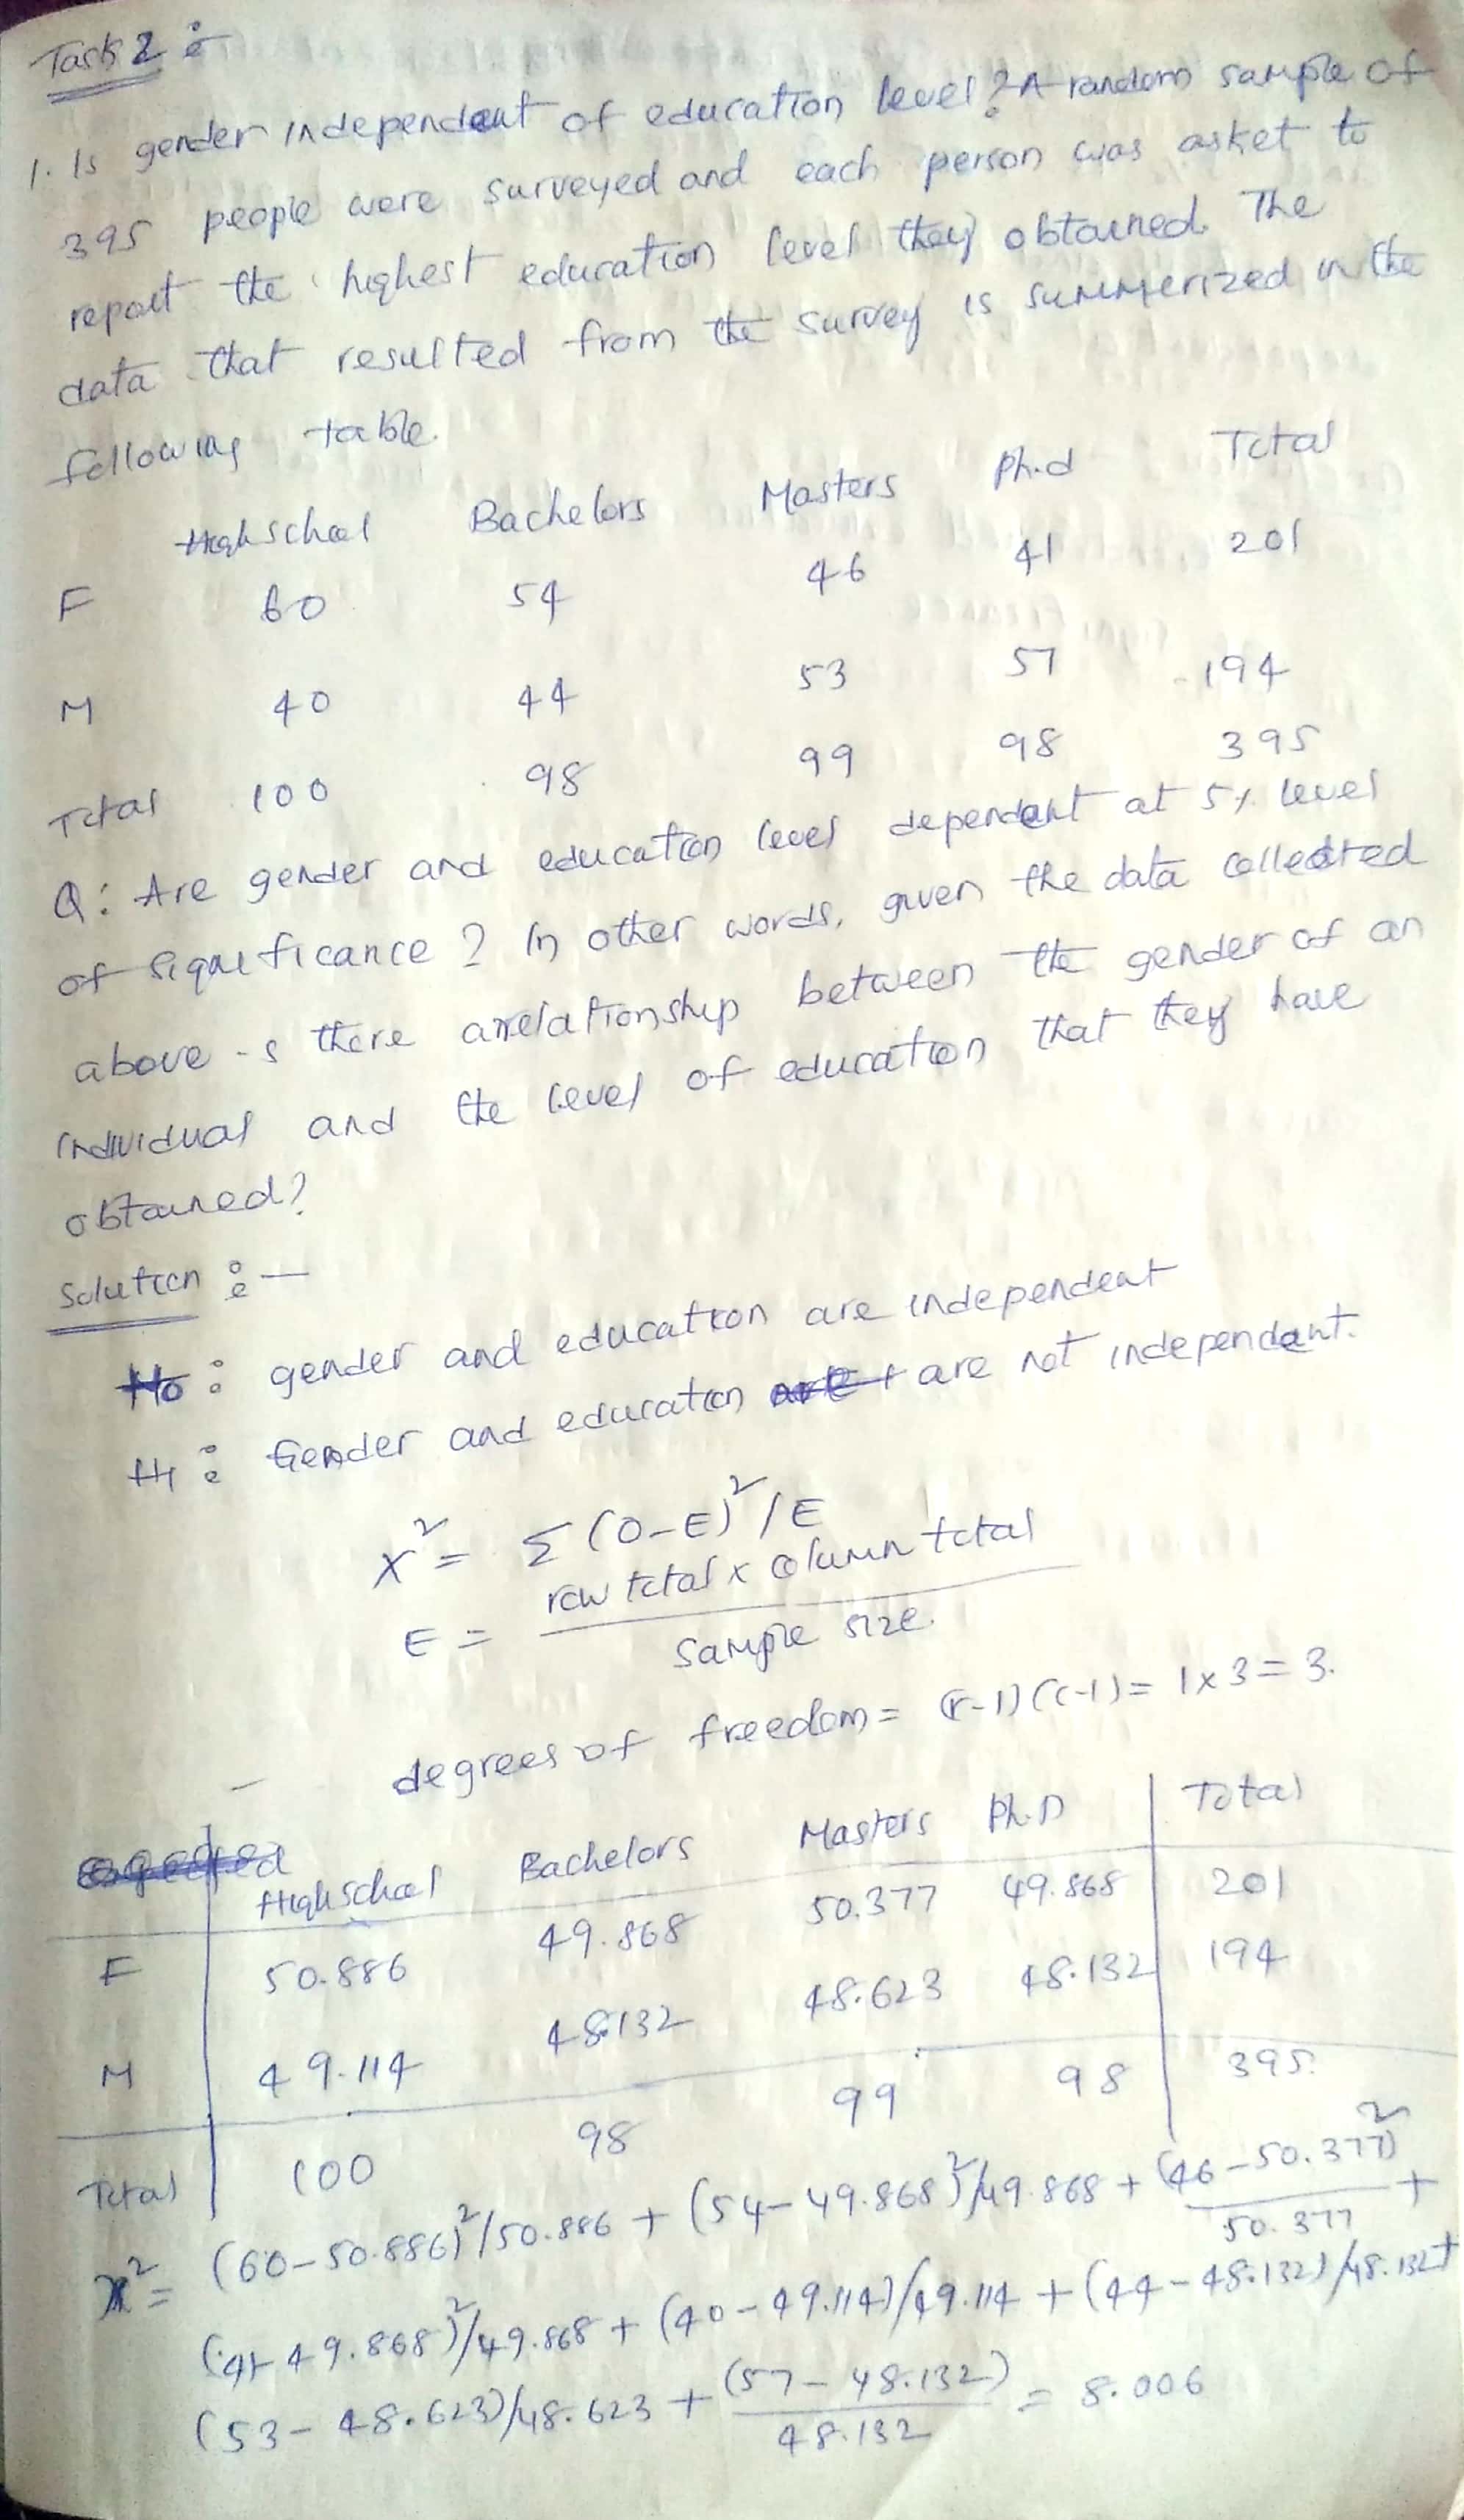 Task 2 :-
1. Is gender independent of education level? A random sample of
395 people were surveyed and each person was asket to
report the highest education level they obtained. The
data that resulted from the survey is summerized in the
following table.
High school Bachelors Masters Ph.d Total
F 60 54 46 41 201
M 40 44 53 57 194
Total 100 98 99 98 395
Q: Are gender and education level dependent at 5% level
of significance? In other words, given the data collected
above is there a relationship between the gender of an
individual and the level of education that they have
obtained?
Solution :-
H0: gender and education are independent
H1: Gender and education are not independent.
X² = Σ (O-E)²/E
E = row total x column total / Sample size.
degrees of freedom = (r-1)(c-1) = 1x3 = 3.
High school Bachelors Masters Ph.D Total
F 50.886 49.868 50.377 49.868 201
M 49.114 48.132 48.623 48.132 194
Total 100 98 99 98 395.
X² = (60-50.886)²/50.886 + (54-49.868)²/49.868 + (46-50.377)²/50.377 +
(41-49.868)²/49.868 + (40-49.114)/49.114 + (44-48.132)/48.132+
(53-48.623)/48.623 + (57-48.132)/48.132 = 8.006